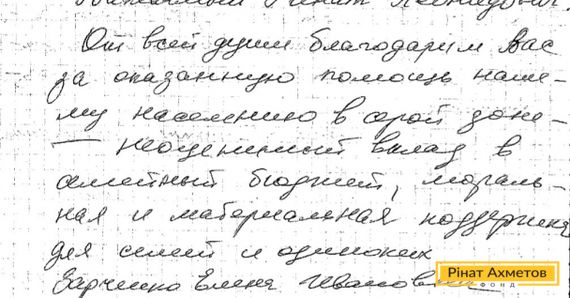 Уважаемый Ринат Леонидович.
От всей души благодарим Вас
за оказанную помощь наше-
му населению в серой зоне -
- неоценимый вклад в
семейный бюджет, мораль-
ная и материальная поддержка
для семей и одиноких
Елена Ивановна
Рінат Ахметов
ФОНД